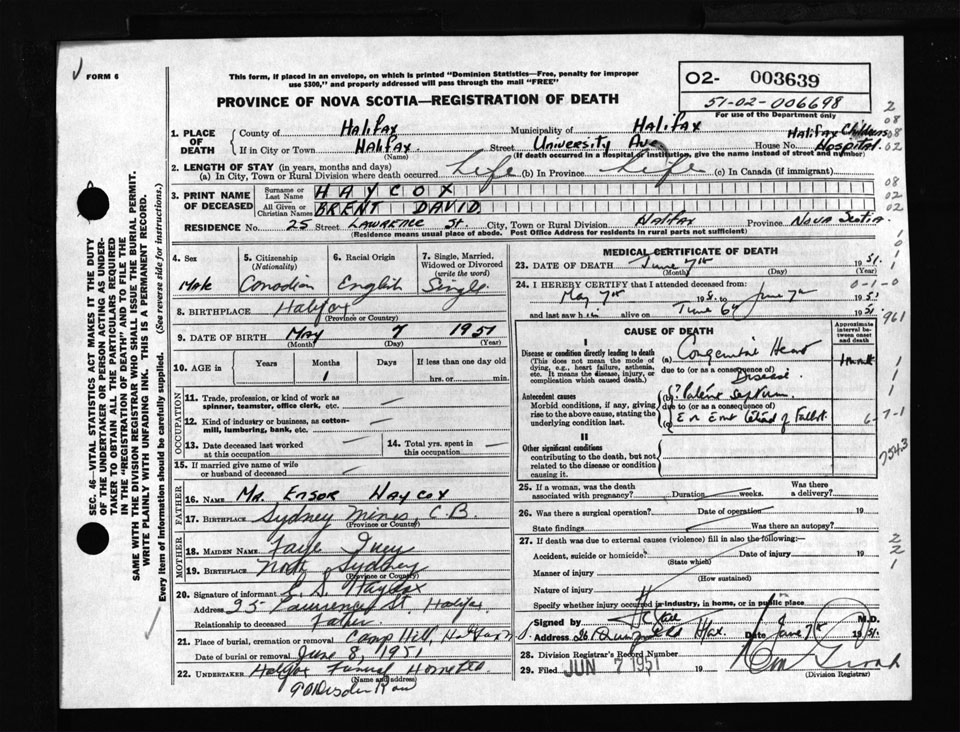 FORM 6
This form, if placed in an envelope, on which is printed "Dominion Statistics—Free, penalty for improper
use $300," and properly addressed will pass through the mail "FREE"
PROVINCE OF NOVA SCOTIA—REGISTRATION OF DEATH
02- 003639
51-02-006698
For use of the Department only
1. PLACE OF DEATH
County of Halifax Municipality of Halifax
If in City or Town Halifax Street University Ave House No. Halifax Childrens Hospital
(Name) (If death occurred in a hospital or institution, give the name instead of street and number)
2. LENGTH OF STAY (in years, months and days)
(a) In City, Town or Rural Division where death occurred Life (b) In Province Life (c) In Canada (if immigrant)
3. PRINT NAME OF DECEASED
Surname or Last Name HAYCOX
All Given or Christian Names BRENT DAVID
RESIDENCE No. 25 Street Lawrence St. City, Town or Rural Division Halifax Province Nova Scotia
(Residence means usual place of abode. Post Office Address for residents in rural parts not sufficient)
4. Sex Male
5. Citizenship (Nationality) Canadian
6. Racial Origin English
7. Single, Married, Widowed or Divorced (write the word) Single
8. BIRTHPLACE Halifax
(Province or Country)
9. DATE OF BIRTH May 7 1951
(Month) (Day) (Year)
10. AGE in Years Months Days If less than one day old
1 hrs. or min.
OCCUPATION
11. Trade, profession, or kind of work as spinner, teamster, office clerk, etc. —
12. Kind of industry or business, as cotton-mill, lumbering, bank, etc. —
13. Date deceased last worked at this occupation —
14. Total yrs. spent in this occupation —
15. If married give name of wife or husband of deceased —
FATHER
16. NAME Mr. Ensor Haycox
17. BIRTHPLACE Sydney Mines, C.B.
(Province or Country)
MOTHER
18. MAIDEN NAME Faye Ivey
19. BIRTHPLACE North Sydney
(Province or Country)
20. Signature of informant Haycox
Address 25 Lawrence St. Halifax
Relationship to deceased Father
21. Place of burial, cremation or removal Camp Hill, Halifax
Date of burial or removal June 8, 1951
22. UNDERTAKER Halifax Funeral Home
(Name and address)
90 Row
MEDICAL CERTIFICATE OF DEATH
23. DATE OF DEATH June 7th 1951
(Month) (Day) (Year)
24. I HEREBY CERTIFY that I attended deceased from:
May 7th 1951 to June 7th 1951
and last saw him alive on June 6th 1951
CAUSE OF DEATH
Approximate interval between onset and death
I
Disease or condition directly leading to death
(This does not mean the mode of dying, e.g., heart failure, asthenia, etc. It means the disease, injury, or complication which caused death.)
(a) Congenital Heart Disease 1 month
due to (or as a consequence of)
Antecedent causes
Morbid conditions, if any, giving rise to the above cause, stating the underlying condition last.
(b) ? Patent Septum
due to (or as a consequence of)
II
Other significant conditions
contributing to the death, but not related to the disease or condition causing it.
25. If a woman, was the death associated with pregnancy? Duration weeks. Was there a delivery?
26. Was there a surgical operation? Date of operation 19
State findings Was there an autopsy?
27. If death was due to external causes (violence) fill in also the following:—
Accident, suicide or homicide? Date of injury 19
(State which)
Manner of injury
(How sustained)
Nature of injury
Specify whether injury occurred in industry, in home, or in public place
Signed by M.D.
Address Hfax. Date June 7th 1951.
28. Division Registrar's Record Number
29. Filed JUN 7 1951 19
(Division Registrar)
SEC. 46—VITAL STATISTICS ACT MAKES IT THE DUTY
OF THE UNDERTAKER OR PERSON ACTING AS UNDER-
TAKER TO OBTAIN ALL THE PARTICULARS REQUIRED
IN THE "REGISTRATION OF DEATH" AND TO FILE THE
SAME WITH THE DIVISION REGISTRAR WHO SHALL ISSUE THE BURIAL PERMIT.
WRITE PLAINLY WITH UNFADING INK. THIS IS A PERMANENT RECORD.
Every item of information should be carefully supplied. (See reverse side for instructions.)
2
08
08
02
08
02
02
0-1-0
961
6-7-1
7543
2
2
1